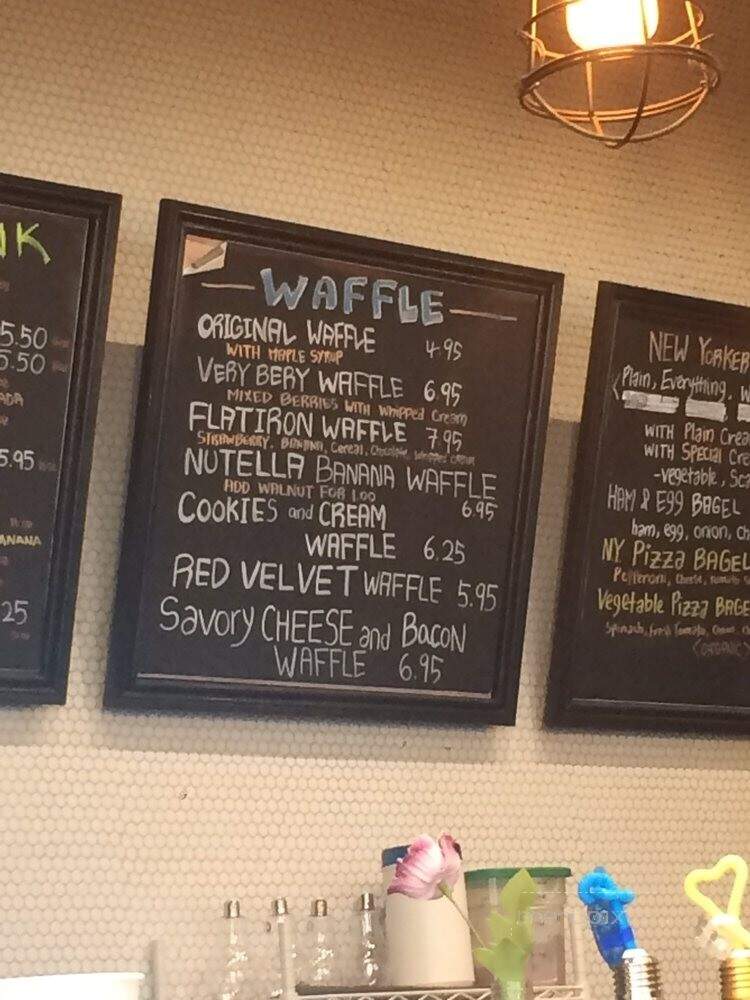 5.50
5.50
5.95
ANANA
25
WAFFLE
ORIGINAL WAFFLE 4.95
WITH MAPLE SYRUP
VERY BERY WAFFLE 6.95
MIXED BERRIES WITH Whipped Cream
FLATIRON WAFFLE 7.95
STRAWBERRY, BANANA, Cereal, Chocolate, Whipped cream
NUTELLA BANANA WAFFLE
ADD WALNUT FOR 1.00 6.95
COOKIES and CREAM
WAFFLE 6.25
RED VELVET WAFFLE 5.95
Savory CHEESE and BACON
WAFFLE 6.95
NEW YORKER
Plain, Everything, W
WITH Plain Crea
WITH Special Cre
-vegetable, Sca
HAM & EGG BAGEL
ham, egg, onion, ch
NY Pizza BAGEL
Pepperoni, Cheese, tomato
Vegetable Pizza BAGE
Spinach, fresh Tomato, Onion
(ORGANIC)